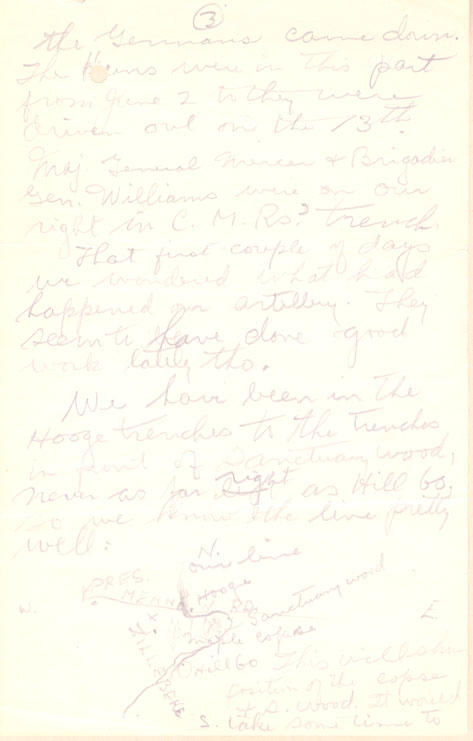 3
the Germans came down.
The Huns were in this part
from June 2 to they were
driven out on the 13th.
Maj. General Mercer & Brigadier
Gen. Williams were on our
right in C. M. Rs. trench.
That first couple of days
we wondered what had
happened our artillery. They
seem to have done good
work lately tho.
We have been in the
Hooge trenches to the trenches
in front of Sanctuary wood,
never as far right as Hill 60,
so we know the line pretty
well:
N.
our line
YPRES.
MENIN RD
Hooge
Sanctuary wood
W.
E.
Maple copse
ZILLEBEKE
Hill 60
This will show
position of the copse
& S. wood. It would
S.
take some time to